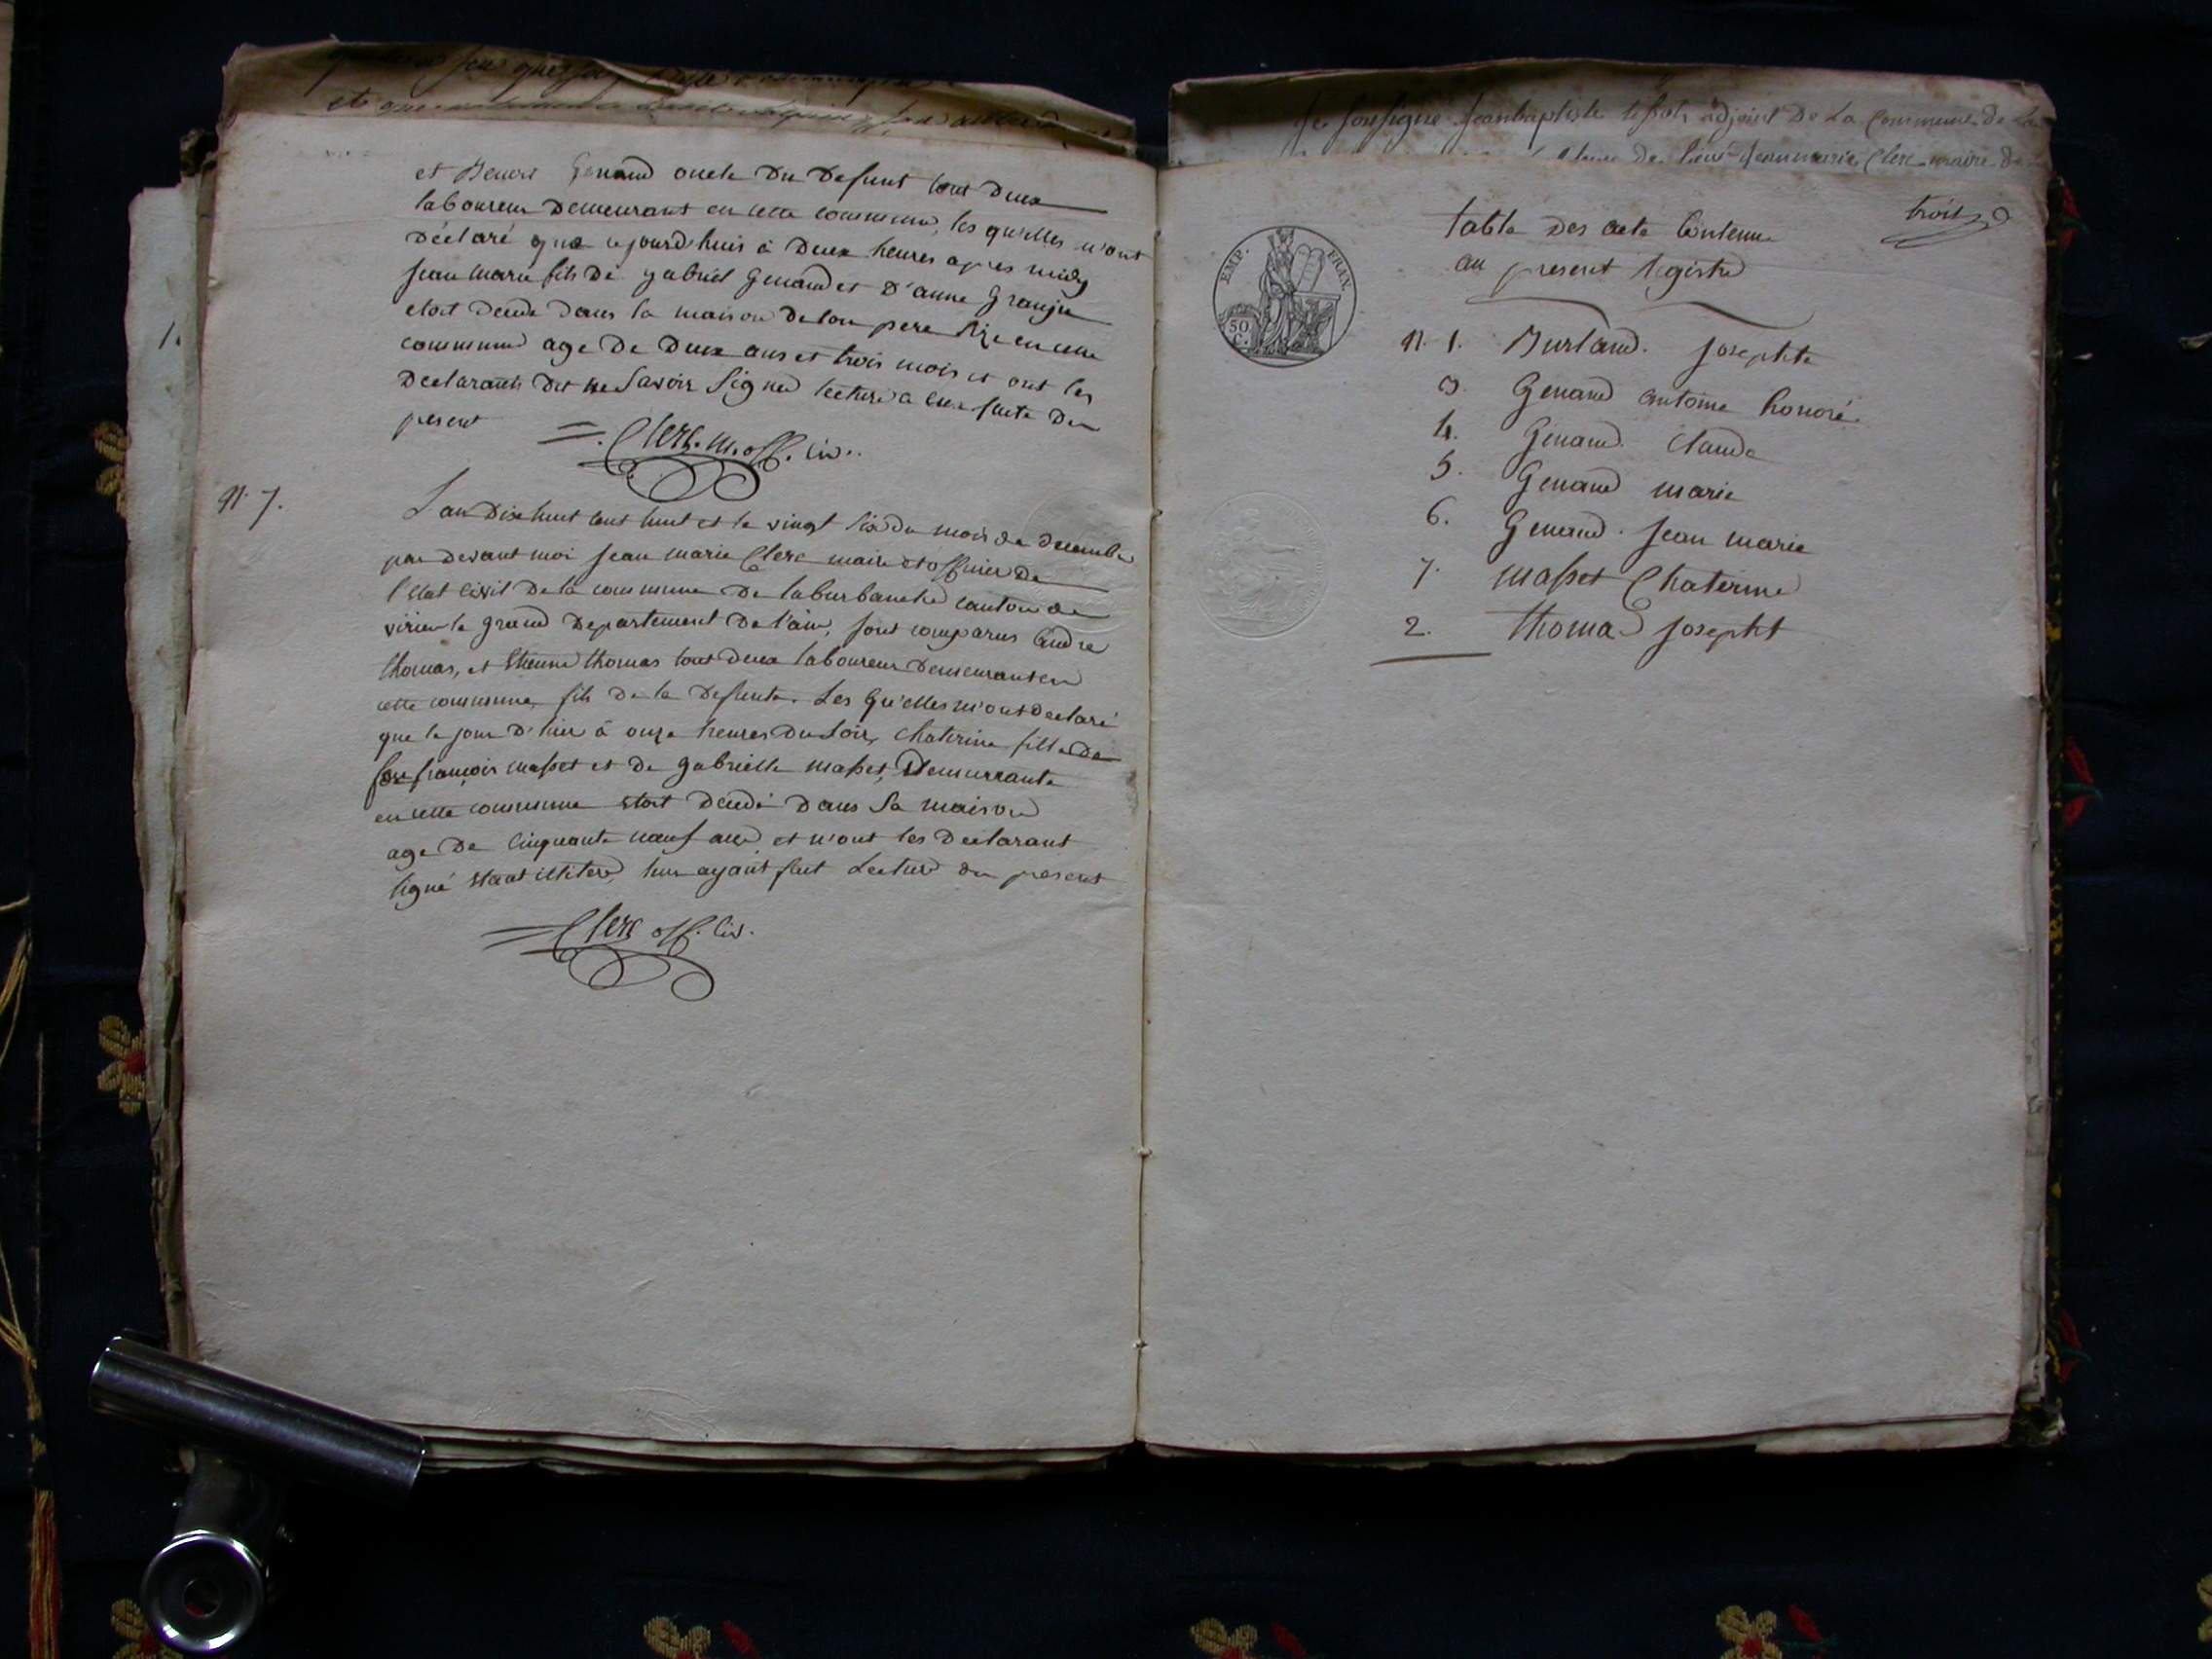 et Benoit Genand oncle du defunt tout deux
laboureur demeurant en cette commune, les qu'elles m'ont
déclaré que cejourd'huis à deux heures apres midy
jean marie fils de gabriel Genand et d'anne Granju
etoit décédé dans la maison de son pere size en cette
commune age de deux ans et trois mois et ont les
declarants dit ne savoir signer lecture a eux faite du
present
Clerc. m. off. civ.
N. 7.
L'an dixhuit cent huit et le vingt six du mois de decembre
par devant moi jean marie Clerc maire et officier de
l'etat civil de la commune de laburbanche canton de
virieu le grand departement de l'ain, sont comparus andre
thomas, et Etienne thomas tout deux laboureur demeurant en
cette commune, fils de la defunte. Les qu'elles m'ont declaré
que le jour d'hier à onze heures du soir, chaterine fille de
feu françois masset et de gabrielle masset, demeurrante
en cette commune etoit décédé dans sa maison
age de cinquante neuf ans, et n'ont les declarant
signé etant illitere, leur ayant fait lecture du present
Clerc off. civ.
Je soussigné Jeanbaptiste adjoint de La Commune de La
Jeanmarie Clerc maire de
EMP. FRAN.
50 C.
trois
table des acte contenue
au present registre
N. 1. Burland. josephte
3. Genand antoine honoré
4. Genand. claude
5. Genand marie
6. Genand. jean marie
7. masset Chaterine
2. thomas josepht